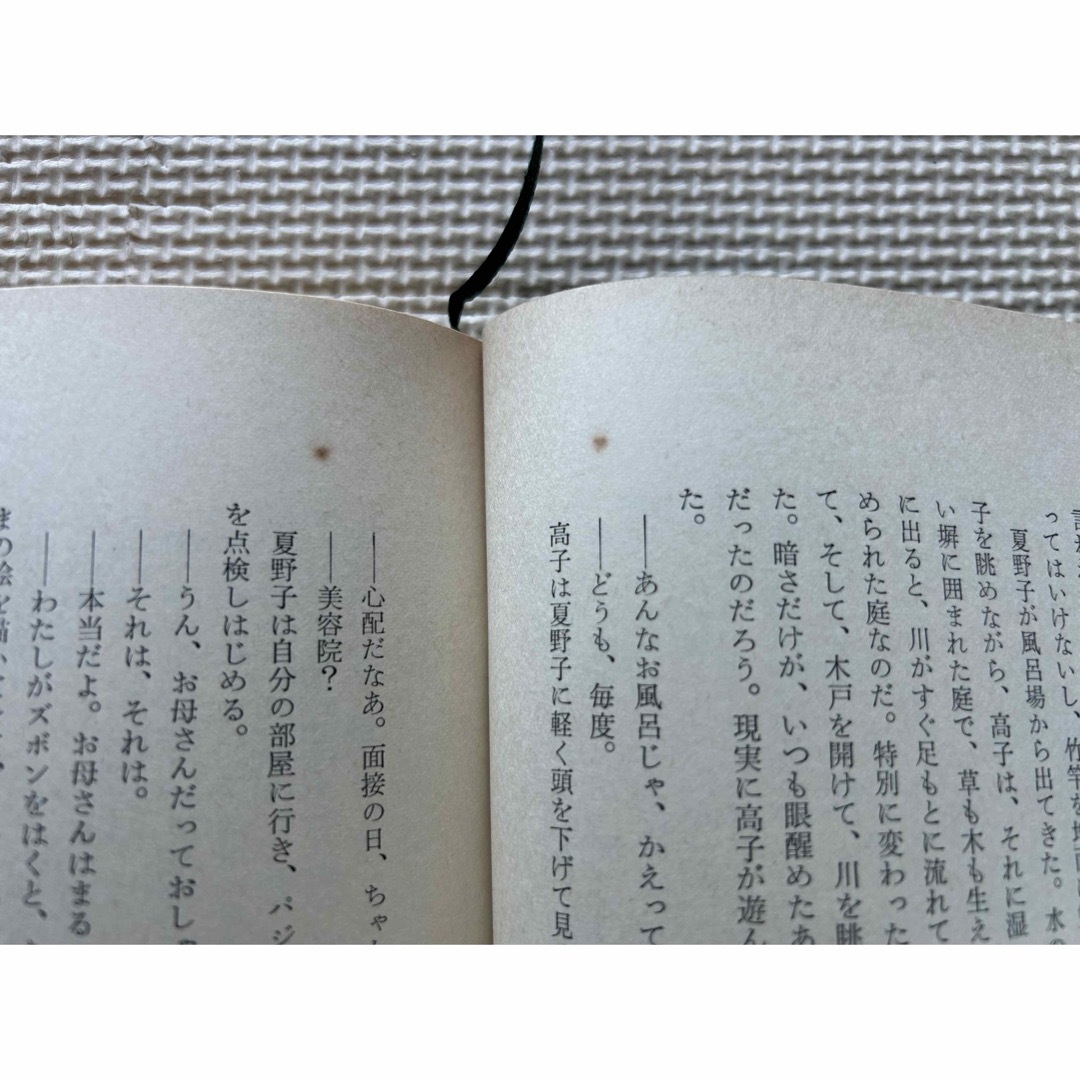 ってはいけないし、竹竿を
夏野子が風呂場から出てきた。水の
子を眺めながら、高子は、それに湿
い塀に囲まれた庭で、草も木も生え
に出ると、川がすぐ足もとに流れて
められた庭なのだ。特別に変わった
て、そして、木戸を開けて、川を眺
た。暗さだけが、いつも眼醒めたあ
だったのだろう。現実に高子が遊ん
た。
――あんなお風呂じゃ、かえって
――どうも、毎度。
高子は夏野子に軽く頭を下げて見
――心配だなあ。面接の日、ちゃん
――美容院?
夏野子は自分の部屋に行き、パジ
を点検しはじめる。
――うん、お母さんだっておしゃ
――それは、それは。
――本当だよ。お母さんはまる
――わたしがズボンをはくと、
まの絵を描いて